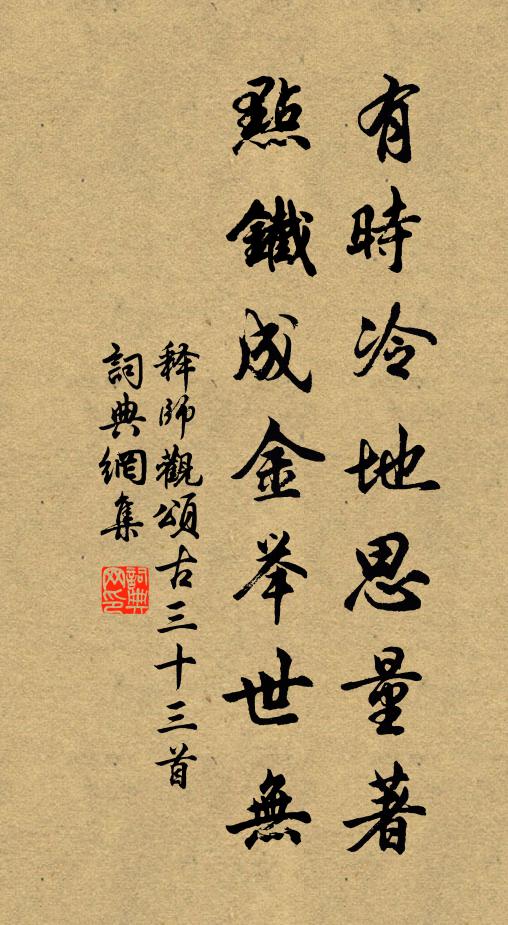 有時冷地思量著
點鐵成金举世無
释師觀頌古三十三首
詞典網集
詞典
网印